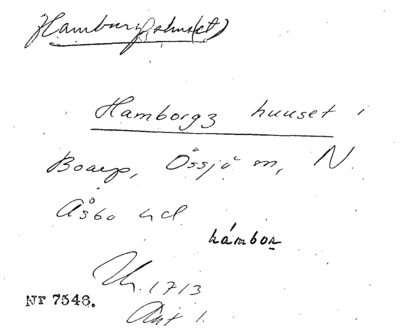 Hamburg(shuset)
Hamborgz huuset i
Boarp, Össjö sn, N.
Åsbo hd
hámbor
Uh. 1713
Nr 7548.
Ant 1.